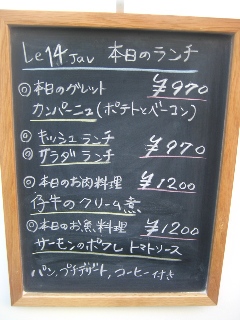 Le 14 Jav 本日のランチ
◎本日のガレット ¥970
カンパーニュ(ポテトとベーコン)
◎キッシュランチ
◎サラダランチ ¥970
◎本日のお肉料理 ¥1200
仔牛のクリーム煮
◎本日のお魚料理 ¥1200
サーモンのポワレ トマトソース
パン、プチデザート、コーヒー付き